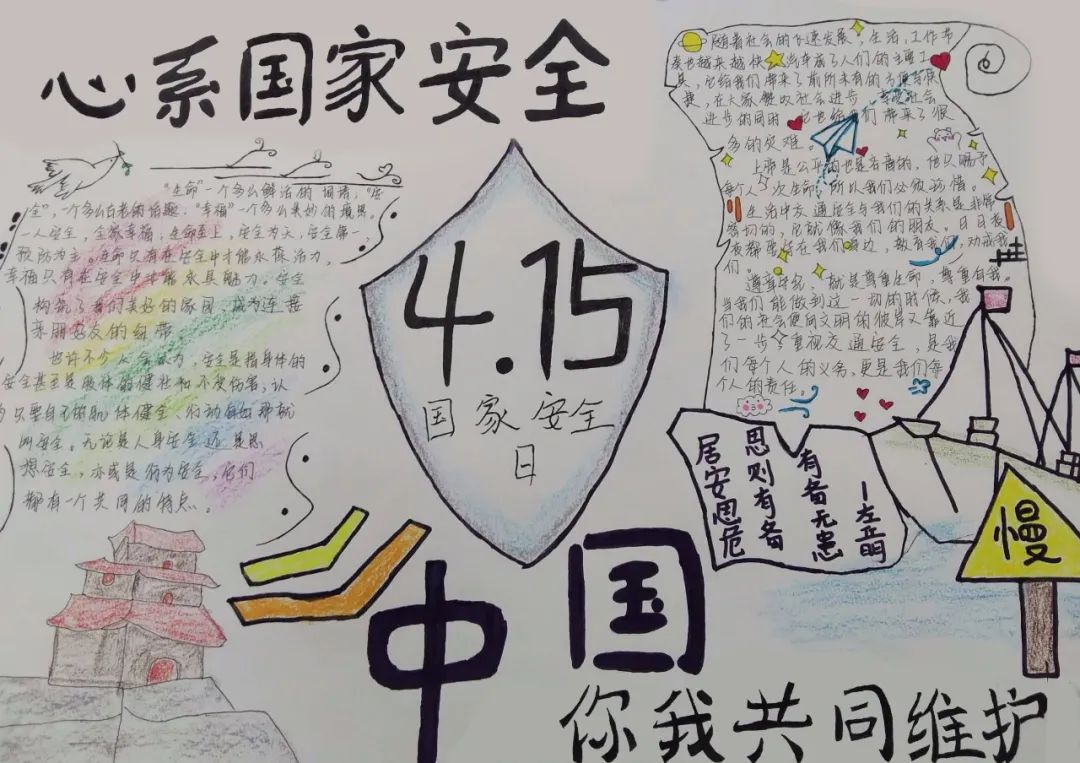 心系国家安全
"生命"一个多么鲜活的词语;"安
全",一个多么古老的话题;"幸福"一个多么美妙的境界。
一人安全,全家幸福;生命至上,安全为天;安全第一,
预防为主。生命只有在安全中才能永保活力,
幸福只有在安全中才能永具魅力。安全
构筑了我们美好的家园,成为连接
亲朋好友的纽带
也许不少人会认为,安全是指身体的
安全甚至是肢体的健壮和不受伤害,认
为只要自己的肌体健全、行动自如那就
叫安全。无论是人身安全还是思
想安全,亦或是行为安全,它们
都有一个共同的特点。
4.15
国家安全
日
随着社会的飞速发展,生活,工作节
奏也越来越快,汽车成了人们的主要工
具,它给我们带来了前所未有的方便与快
捷,在大家赞叹社会进步,
进步的同时,它也给我们带来了很
多的灾难。
上帝是公平的也是吝啬的,他只赐予
每个人一次生命,所以我们必须珍惜。
生活中交通安全与我们的关系是非常
密切的,它就像我们的朋友。日日夜
夜都要陪在我们身边,教育我们,劝戒我
们。
遵章守纪,就是尊重生命,尊重自我。
当我们能做到这一切的时候,我
们的社会便向文明的彼岸又靠近
了一步,重视交通安全,是我
们每个人的义务,更是我们每
个人的责任。
居安思危
思则有备
有备无患
—左丘明
慢
中国
你我共同维护